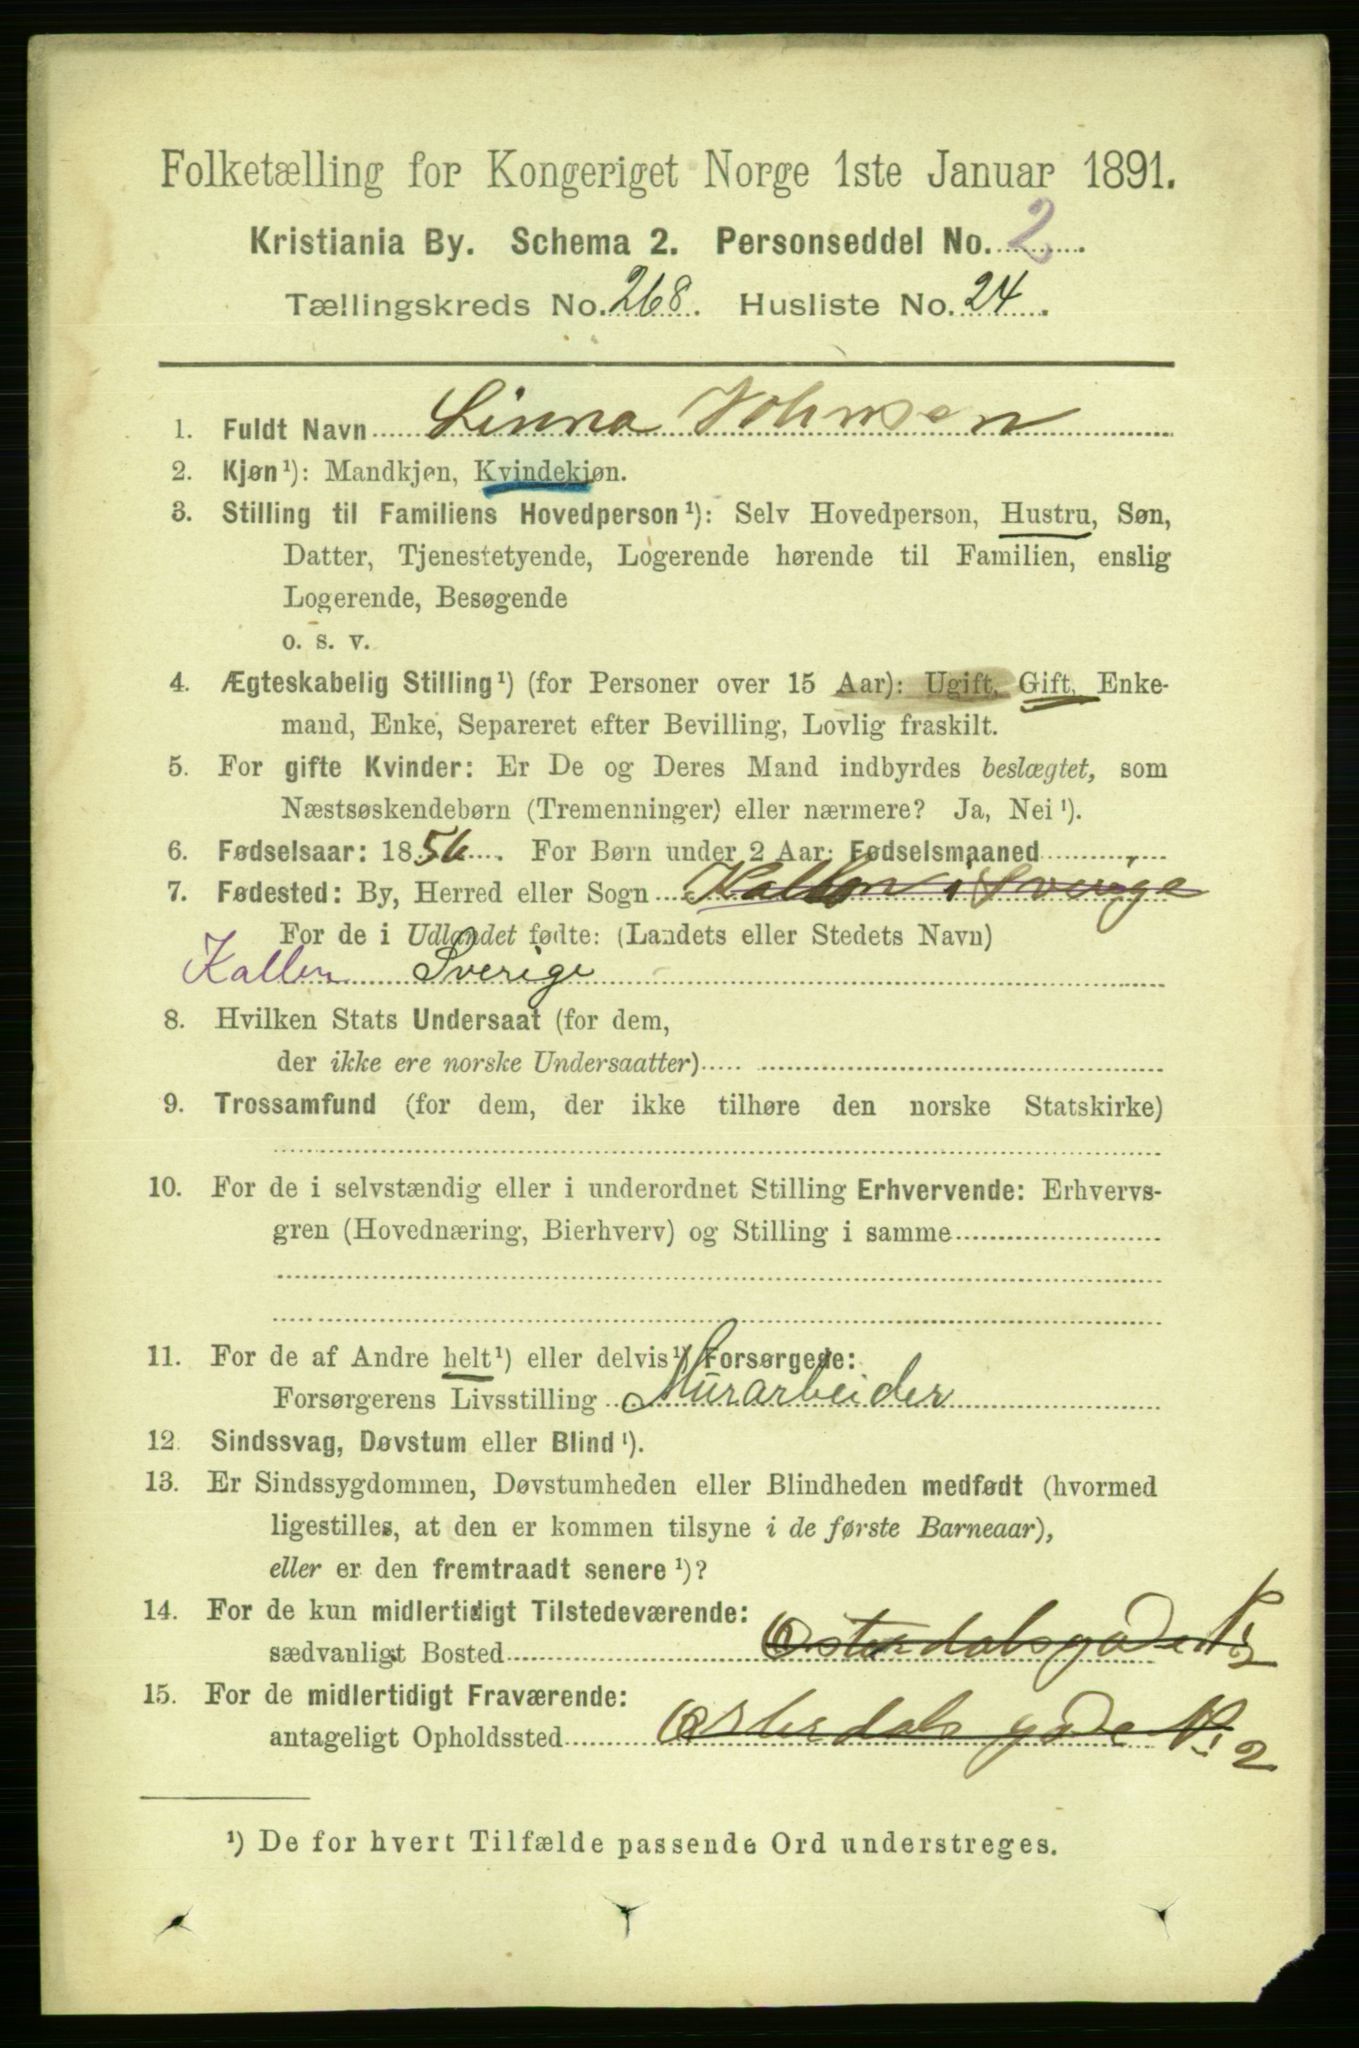 Folketælling for Kongeriget Norge 1ste Januar 1891.
Kristiania By. Schema 2. Personseddel No. 2.
Tællingskreds No. 268. Husliste No. 24.
1. Fuldt Navn Linna Johnsen
2. Kjøn¹): Mandkjøn, Kvindekjøn.
3. Stilling til Familiens Hovedperson¹): Selv Hovedperson, Hustru, Søn,
Datter, Tjenestetyende, Logerende hørende til Familien, enslig
Logerende, Besøgende
o. s. v.
4. Ægteskabelig Stilling¹) (for Personer over 15 Aar): Ugift, Gift, Enke-
mand, Enke, Separeret efter Bevilling, Lovlig fraskilt.
5. For gifte Kvinder: Er De og Deres Mand indbyrdes beslægtet, som
Næstsøskendebørn (Tremenninger) eller nærmere? Ja, Nei¹).
6. Fødselsaar: 1856. For Børn under 2 Aar: Fødselsmaaned
7. Fødested: By, Herred eller Sogn Kallen i Sverige
For de i Udlandet fødte: (Landets eller Stedets Navn)
Kallen Sverige
8. Hvilken Stats Undersaat (for dem,
der ikke ere norske Undersaatter)
9. Trossamfund (for dem, der ikke tilhøre den norske Statskirke)
10. For de i selvstændig eller i underordnet Stilling Erhvervende: Erhvervs-
gren (Hovednæring, Bierhverv) og Stilling i samme
11. For de af Andre helt¹) eller delvis¹) Forsørgede:
Forsørgerens Livsstilling Murarbeider
12. Sindssvag, Døvstum eller Blind¹).
13. Er Sindssygdommen, Døvstumheden eller Blindheden medfødt (hvormed
ligestilles, at den er kommen tilsyne i de første Barneaar),
eller er den fremtraadt senere¹)?
14. For de kun midlertidigt Tilstedeværende:
sædvanligt Bosted Østerdalsgade N: 2
15. For de midlertidigt Fraværende:
antageligt Opholdssted Østerdalsgade N: 2
¹) De for hvert Tilfælde passende Ord understreges.